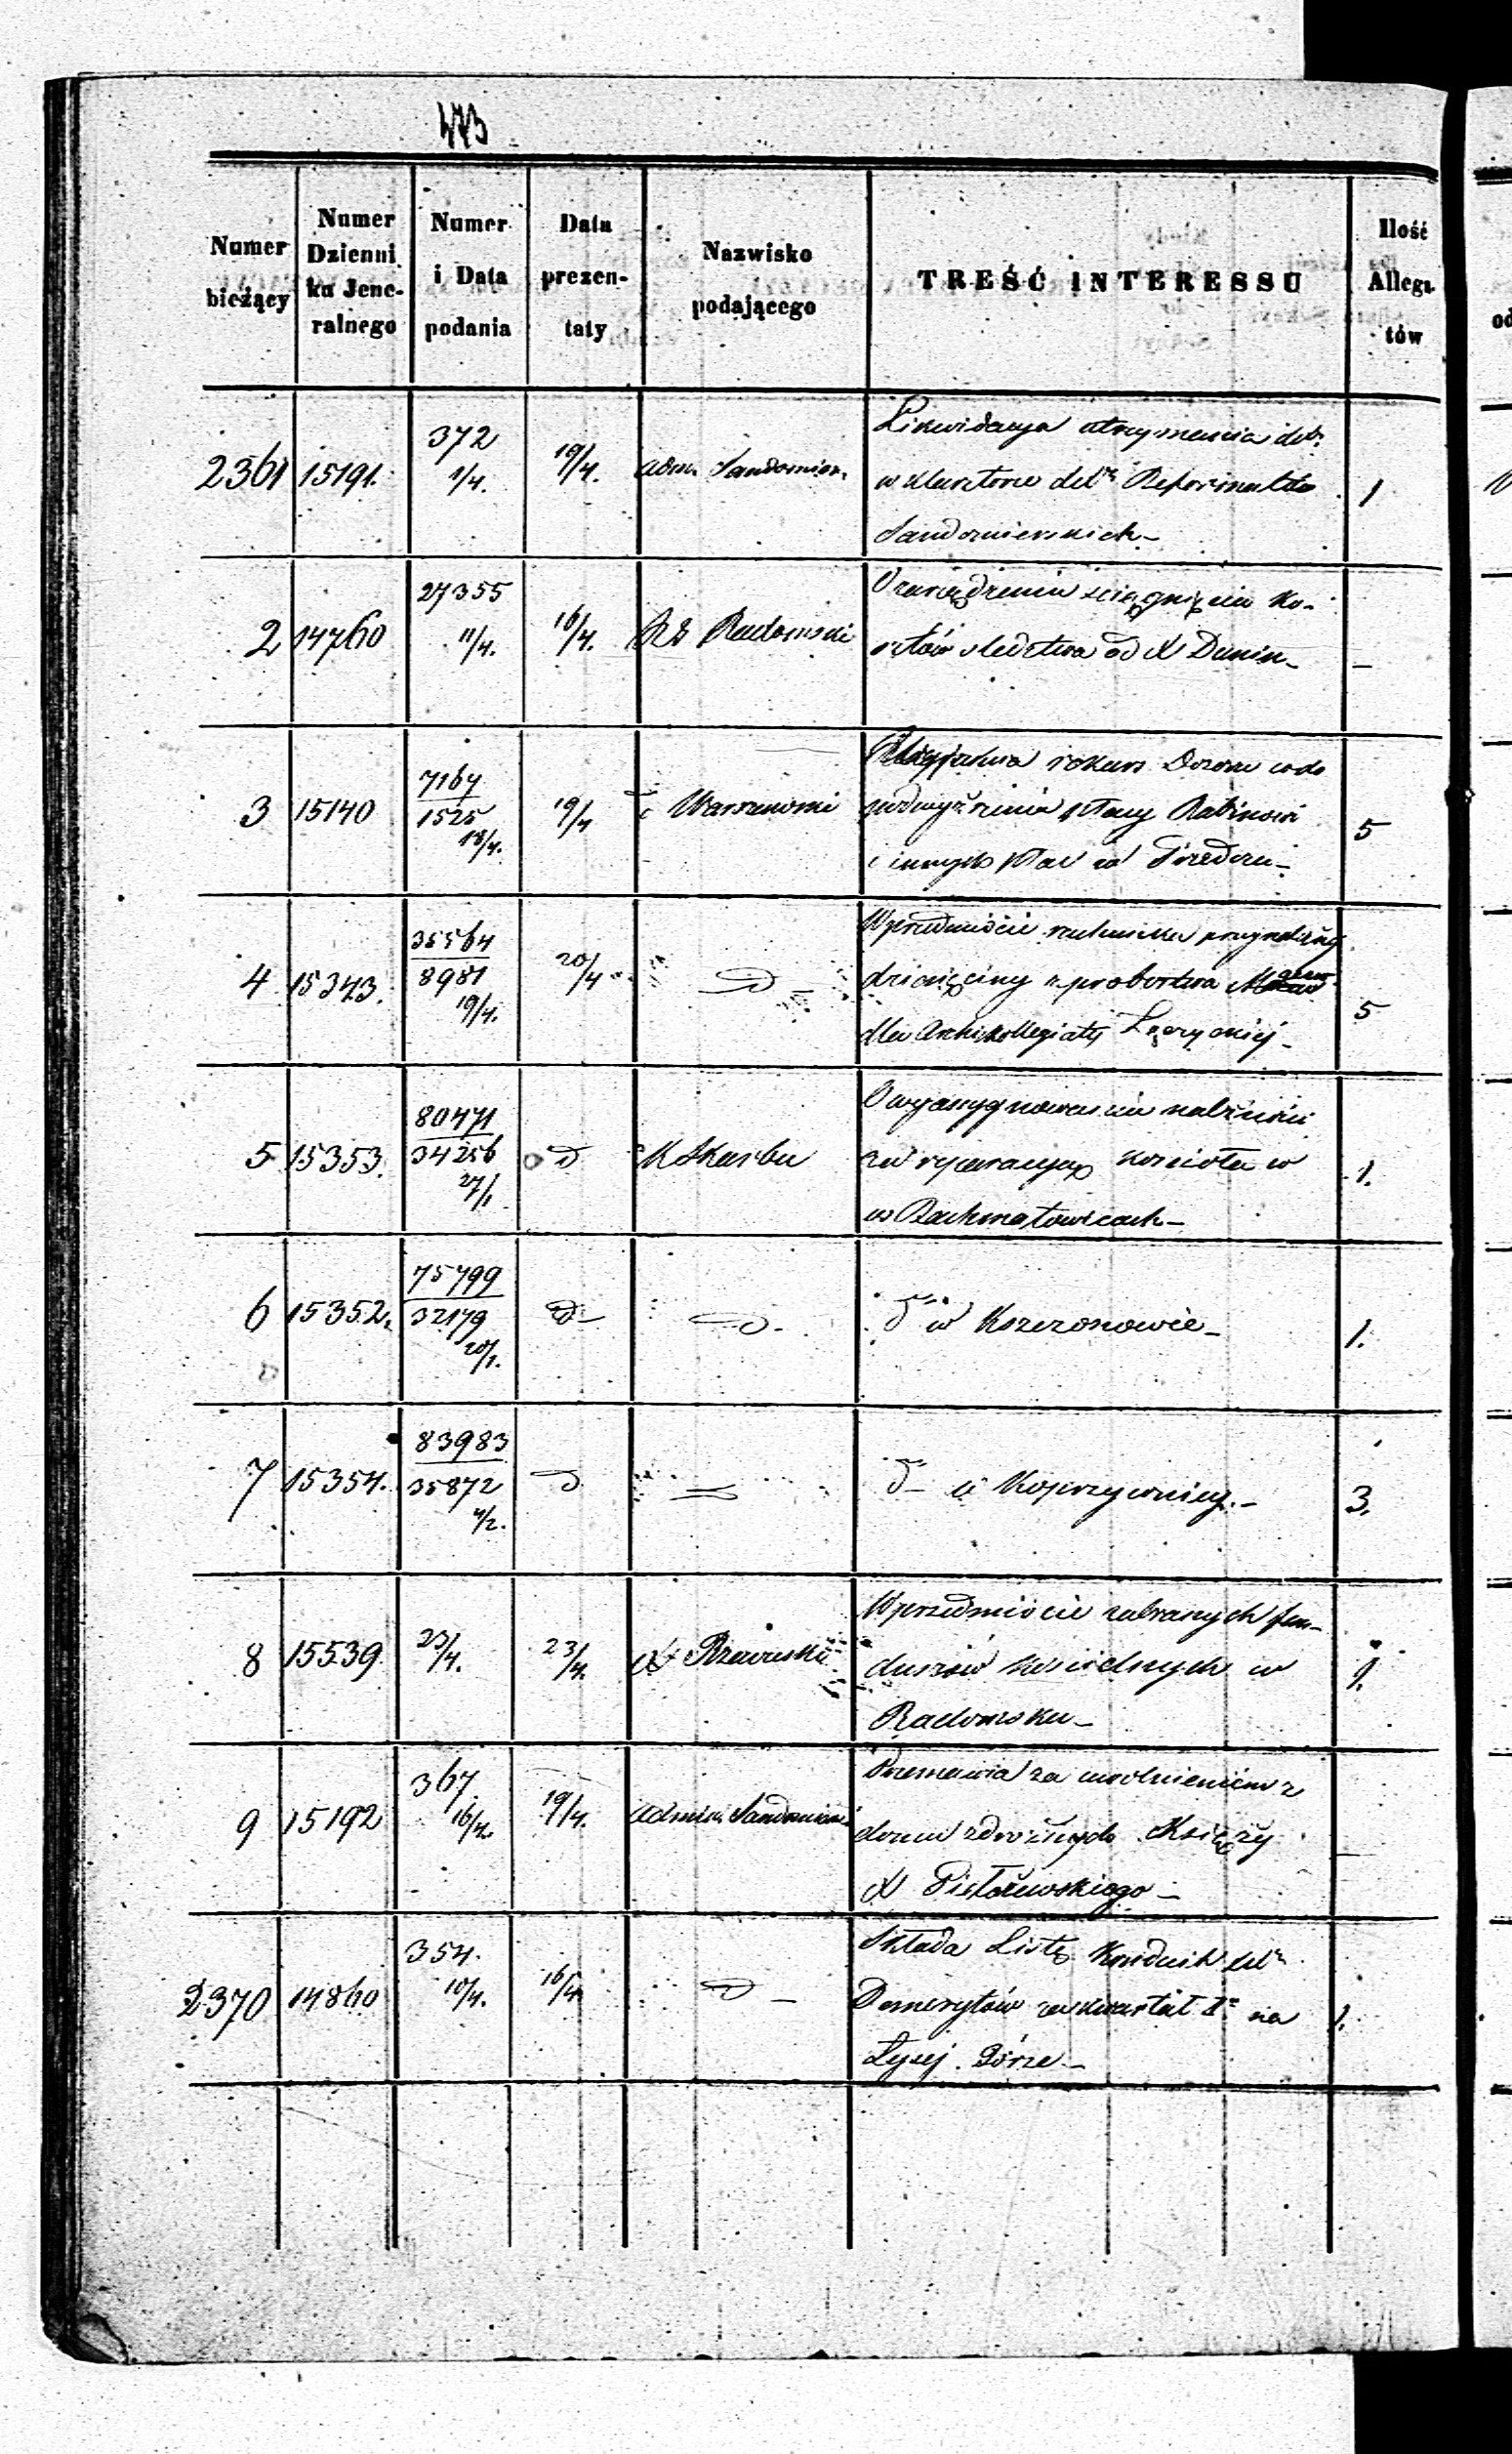 473
Numer bieżący | Numer Dziennika Jeneralnego | Numer i Data podania | Data prezentaty | Nazwisko podającego | TREŚĆ INTERESSU | Ilość Allegatów
2361 | 15191. | 372 1/4. | 19/4. | Adm. Sandomier. | Likwidacya utrzymania det:
w klasztorze detr Reformatów
Sandomierskich – | 1
2 | 14760 | 27355 11/4. | 16/4. | RG Radomski | O zarządzenie ściągnięcia ko-
sztów śledztwa od X Dunin – | –
3 | 15140 | 7167 1525 18/4. | 19/4 | Warszawski | rekurs Dozoru co do
podwyższenia płacy Rabinowi
i innych płac w Przedczu – | 5
4 | 15343. | 35564 8981 19/4. | 20/4 | D – | W przedmiocie rachunku przynależnej
dziesięciny z probostwa
dla Archikollegiaty Łęczyckiej – | 5
5 | 15353. | 80471 34256 27/1 | D | K Skarbu | O wyasygnowanie należności
za reperacyą kościoła w
w Bachmatowicach – | 1.
6 | 15352. | 75799 32179 20/1. | D – | D – | D w Korczonowie – | 1.
7 | 15354. | 83983 35872 4/2. | D | = | D – w Koprzywnicy. – | 3.
8 | 15539 | 23/4. | 23/4. | X Rzewuski | W przedmiocie zabranych fun-
duszów kościelnych w
Radomsku – | 1.
9 | 15192 | 367 16/4. | 19/4. | Admin. Sandomier. | Przemawia za uwolnieniem z
domu zdrożnych Księży
X | –
2370 | 14860 | 354. 10/4. | 16/4 | D – | Składa Listę Konduit detr
Demerytów za kwartał I° na
Łysej Górze – | 1.